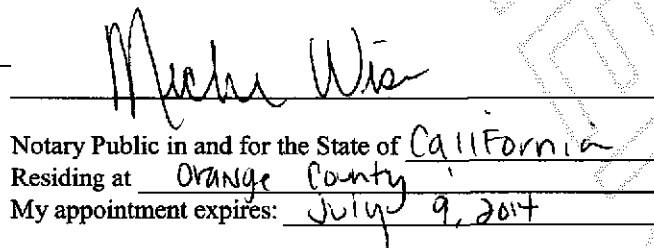 Notary Public in and for the State of CalIFornia
Residing at Orange County
My appointment expires: July 9, 2014